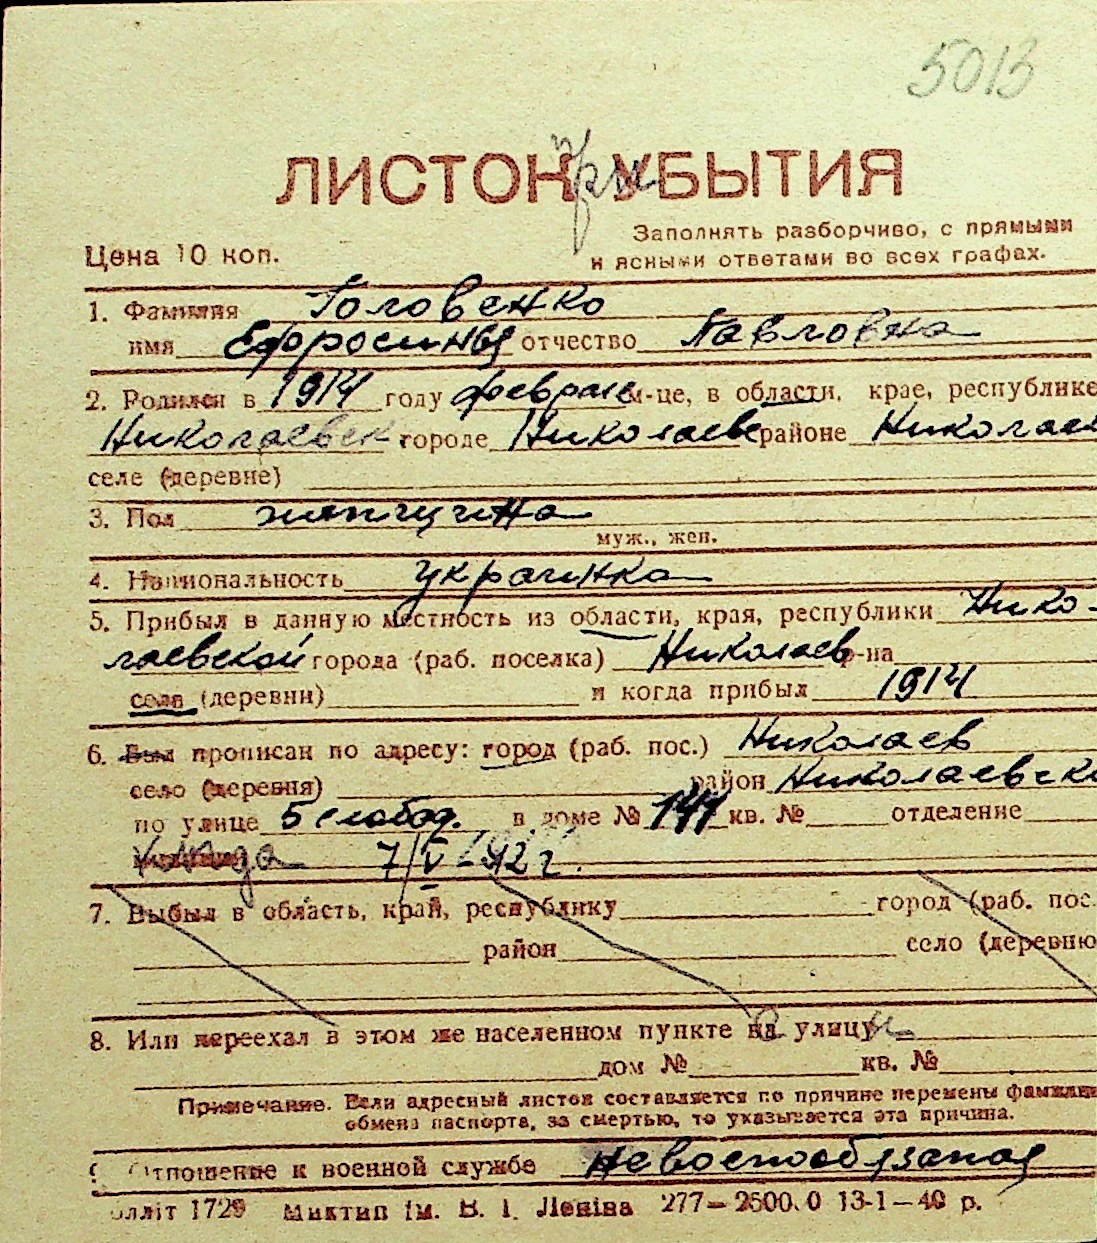 5013
ЛИСТОК при УБЫТИЯ
Заполнять разборчиво, с прямыми
Цена 10 коп.
и ясными ответами во всех графах.
1. Фамилия Головенко
имя Ефросинья отчество Павловна
2. Родился в 1914 году феврале м-це, в области, крае, республике
Николаевск городе Николаеве районе Николаев
селе (деревне)
3. Пол женщина
муж., жен.
4. Национальность украинка
5. Прибыл в данную местность из области, края, республики Нико-
лаевской города (раб. поселка) Николаев р-на
села (деревни) и когда прибыл 1914
6. Был прописан по адресу: город (раб. пос.) Николаев
село (деревня) район Николаевск
по улице 5 слобод. в доме № 144 кв. № отделение
когда 7/V-1942 г.
7. Выбыл в область, край, республику город (раб. пос.
район село (деревню
8. Или переехал в этом же населенном пункте на улицу
дом № кв. №
Примечание. Если адресный листок составляется по причине перемены фамилии
обмена паспорта, за смертью, то указывается эта причина.
Отношение к военной службе невоеннообязаная
олліт 1729 Миктип ім. В. І. Леніна 277—2500.0 13-1—40 р.